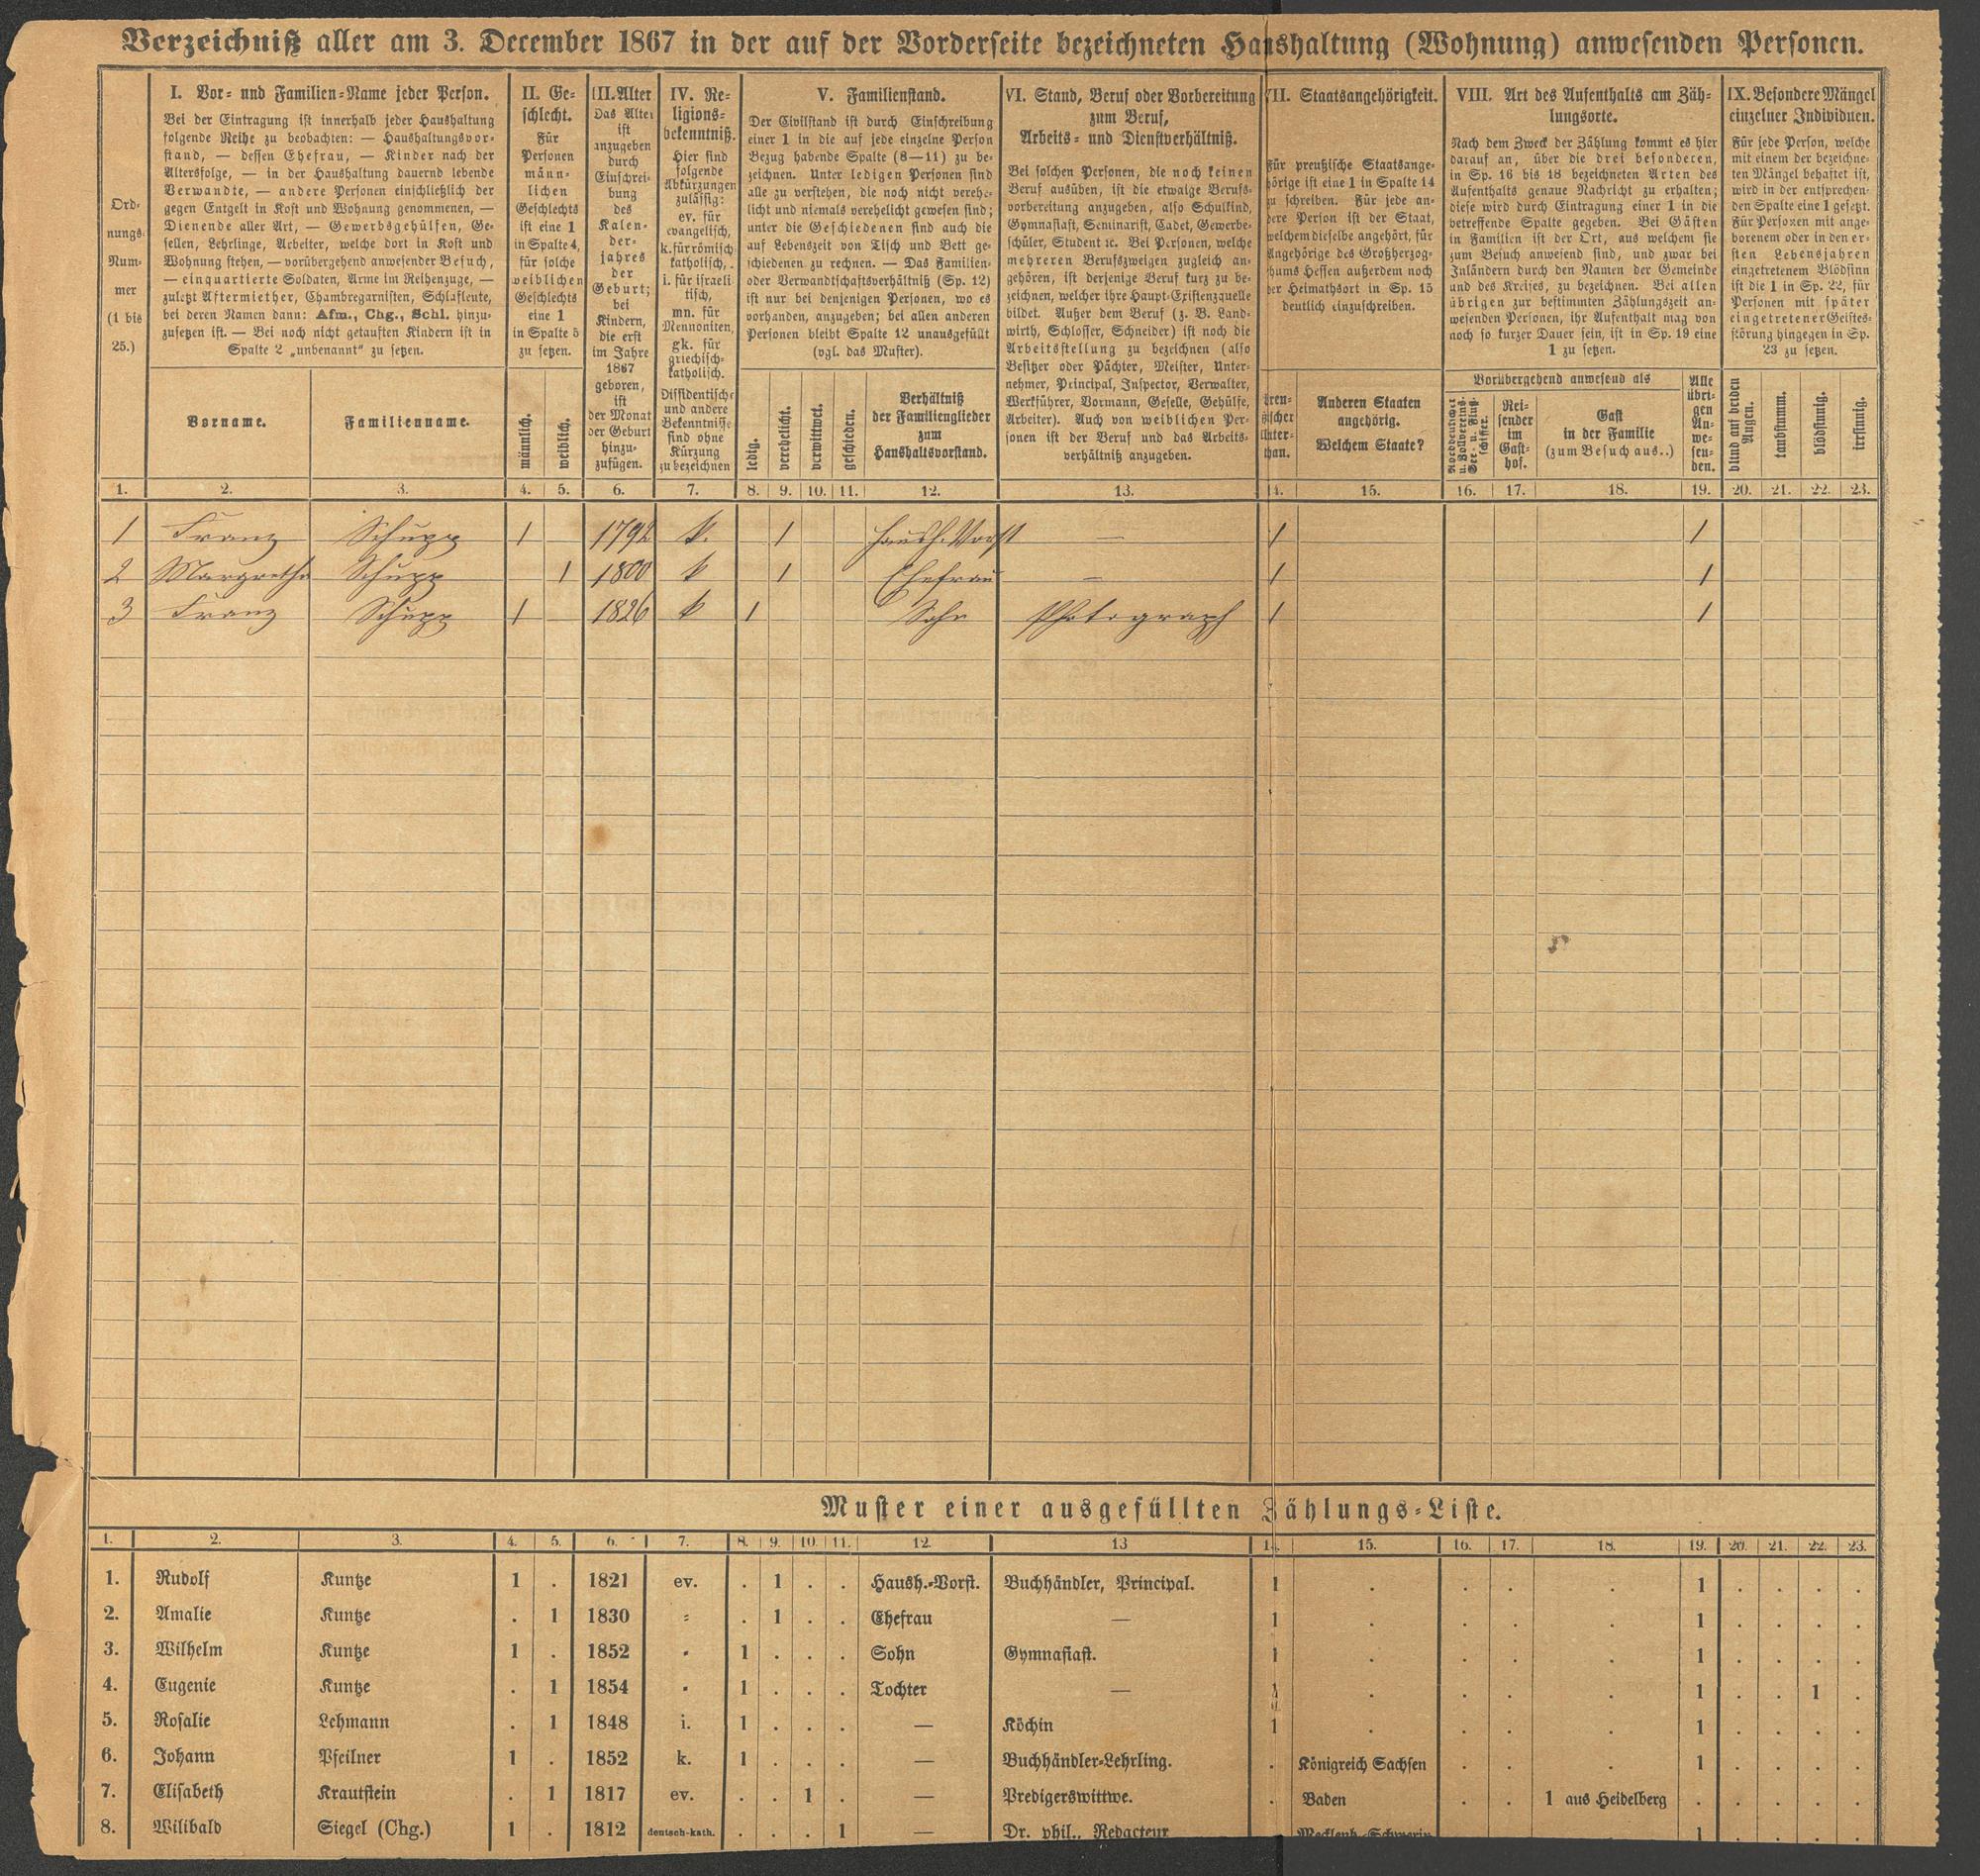 Verzeichniß aller am 3. December 1867 in der auf der Vorderseite bezeichneten Haushaltung (Wohnung) anwesenden Personen.
Ord-
nungs-
Num-
mer
(1 bis
25.)
I. Vor- und Familien-Name jeder Person.
Bei der Eintragung ist innerhalb jeder Haushaltung
folgende Reihe zu beobachten: — Haushaltungsvor-
stand, — dessen Ehefrau, — Kinder nach der
Altersfolge, — in der Haushaltung dauernd lebende
Verwandte, — andere Personen einschließlich der
gegen Entgelt in Kost und Wohnung genommenen, —
Dienende aller Art, — Gewerbsgehülfen, Ge-
sellen, Lehrlinge, Arbeiter, welche dort in Kost und
Wohnung stehen, — vorübergehend anwesender Besuch,
— einquartierte Soldaten, Arme im Reihenzuge, —
zuletzt Aftermiether, Chambregarnisten, Schlafleute,
bei deren Namen dann: Afm., Chg., Schl. hinzu-
zusetzen ist. — Bei noch nicht getauften Kindern ist in
Spalte 2 „unbenannt“ zu setzen.
Vorname.
Familienname.
II. Ge-
schlecht.
Für
Personen
männ-
lichen
Geschlechts
ist eine 1
in Spalte 4,
für solche
weiblichen
Geschlechts
eine 1
in Spalte 5
zu setzen.
männlich.
weiblich.
III. Alter
Das Alter
ist
anzugeben
durch
Einschrei-
bung
des
Kalen-
der-
jahres
der
Geburt;
bei
Kindern,
die erst
im Jahre
1867
geboren,
ist
der Monat
der Geburt
hinzu-
zufügen.
IV. Re-
ligions-
bekenntniß.
Hier sind
folgende
Abkürzungen
zulässig:
ev. für
evangelisch,
k. für römisch
katholisch,
i. für israeli-
tisch,
mn. für
Mennoniten,
gk. für
griechisch-
katholisch.
Dissidentische
und andere
Bekenntnisse
sind ohne
Kürzung
zu bezeichnen
V. Familienstand.
Der Civilstand ist durch Einschreibung
einer 1 in die auf jede einzelne Person
Bezug habende Spalte (8—11) zu be-
zeichnen. Unter ledigen Personen sind
alle zu verstehen, die noch nicht verehe-
licht und niemals verehelicht gewesen sind;
unter die Geschiedenen sind auch die
auf Lebenszeit von Tisch und Bett ge-
schiedenen zu rechnen. — Das Familien-
oder Verwandtschaftsverhältniß (Sp. 12)
ist nur bei denjenigen Personen, wo es
vorhanden, anzugeben; bei allen anderen
Personen bleibt Spalte 12 unausgefüllt
(vgl. das Muster).
ledig.
verehelicht.
verwittwet.
geschieden.
Verhältniß
der Familienglieder
zum
Haushaltsvorstand.
VI. Stand, Beruf oder Vorbereitung
zum Beruf,
Arbeits- und Dienstverhältniß.
Bei solchen Personen, die noch keinen
Beruf ausüben, ist die etwaige Berufs-
vorbereitung anzugeben, also Schulkind,
Gymnasiast, Seminarist, Cadet, Gewerbe-
schüler, Student ꝛc. Bei Personen, welche
mehreren Berufszweigen zugleich an-
gehören, ist derjenige Beruf kurz zu be-
zeichnen, welcher ihre Haupt-Existenzquelle
bildet. Außer dem Beruf (z. B. Land-
wirth, Schlosser, Schneider) ist noch die
Arbeitsstellung zu bezeichnen (also
Besitzer oder Pächter, Meister, Unter-
nehmer, Principal, Inspector, Verwalter,
Werkführer, Vormann, Geselle, Gehülfe,
Arbeiter). Auch von weiblichen Per-
sonen ist der Beruf und das Arbeits-
verhältniß anzugeben.
VII. Staatsangehörigkeit.
Für preußische Staatsange-
hörige ist eine 1 in Spalte 14
zu schreiben. Für jede an-
dere Person ist der Staat,
welchem dieselbe angehört, für
Angehörige des Großherzog-
thums Hessen außerdem noch
der Heimathsort in Sp. 15
deutlich einzuschreiben.
Anderen Staaten
angehörig.
Welchem Staate?
VIII. Art des Aufenthalts am Zäh-
lungsorte.
Nach dem Zweck der Zählung kommt es hier
darauf an, über die drei besonderen,
in Sp. 16 bis 18 bezeichneten Arten des
Aufenthalts genaue Nachricht zu erhalten;
diese wird durch Eintragung einer 1 in die
betreffende Spalte gegeben. Bei Gästen
in Familien ist der Ort, aus welchem sie
zum Besuch anwesend sind, und zwar bei
Inländern durch den Namen der Gemeinde
und des Kreises, zu bezeichnen. Bei allen
übrigen zur bestimmten Zählungszeit an-
wesenden Personen, ihr Aufenthalt mag von
noch so kurzer Dauer sein, ist in Sp. 19 eine
1 zu setzen.
Vorübergehend anwesend als
Norddeutscher
u. Zollvereins-
See- u. Fluß-
schiffer.
Rei-
sender
im
Gast-
hof.
Gast
in der Familie
(zum Besuch aus..)
Alle
übri-
gen
An-
we-
sen-
den.
IX. Besondere Mängel
einzelner Individuen.
Für jede Person, welche
mit einem der bezeichne-
ten Mängel behaftet ist,
wird in der entsprechen-
den Spalte eine 1 gesetzt.
Für Personen mit ange-
borenem oder in den er-
sten Lebensjahren
eingetretenem Blödsinn
ist die 1 in Sp. 22, für
Personen mit später
eingetretener Geistes-
störung hingegen in Sp.
23 zu setzen.
blind auf beiden
Augen.
taubstumm.
blödsinnig.
irrsinnig.
1. 2. 3. 4. 5. 6. 7. 8. 9. 10. 11. 12. 13. 14. 15. 16. 17. 18. 19. 20. 21. 22. 23.
1 Franz Schupp 1 1792 k. 1 Haush. Vorst — 1 1
2 Margretha Schupp 1 1800 k 1 Ehefrau — 1 1
3 Franz Schupp 1 1826 k 1 Sohn Photograph 1 1
Muster einer ausgefüllten Zählungs-Liste.
1. 2. 3. 4. 5. 6. 7. 8. 9. 10. 11. 12. 13 14. 15. 16. 17. 18. 19. 20. 21. 22. 23.
1. Rudolf Kuntze 1 . 1821 ev. . 1 . . Haush.-Vorst. Buchhändler, Principal. 1 . . . . 1 . . . .
2. Amalie Kuntze . 1 1830 = . 1 . . Ehefrau — 1 . . . . 1 . . . .
3. Wilhelm Kuntze 1 . 1852 " 1 . . . Sohn Gymnasiast. 1 . . . . 1 . . . .
4. Eugenie Kuntze . 1 1854 " 1 . . . Tochter — 1 . . . . 1 . . 1 .
5. Rosalie Lehmann . 1 1848 i. 1 . . . — Köchin 1 . . . . 1 . . . .
6. Johann Pfeilner 1 . 1852 k. 1 . . . — Buchhändler-Lehrling. . Königreich Sachsen . . . 1 . . . .
7. Elisabeth Krautstein . 1 1817 ev. . . 1 . — Predigerswittwe. . Baden . . 1 aus Heidelberg . . . . .
8. Wilibald Siegel (Chg.) 1 . 1812 deutsch-kath. . . . 1 — Dr. phil., Redacteur . Mecklenb.-Schwerin . . . 1 . . . .